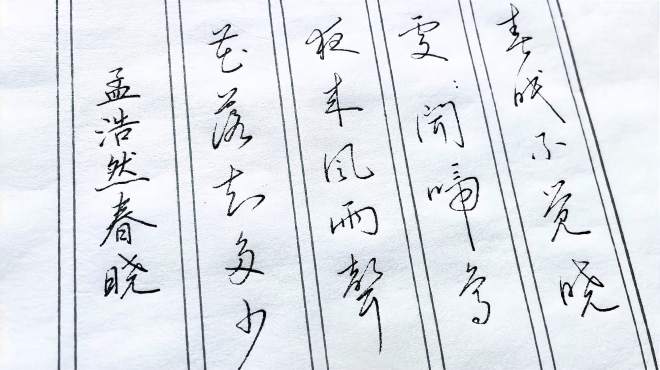 春眠不觉晓
处:闻啼鸟
夜来风雨聲
花落知多少
孟浩然春晓